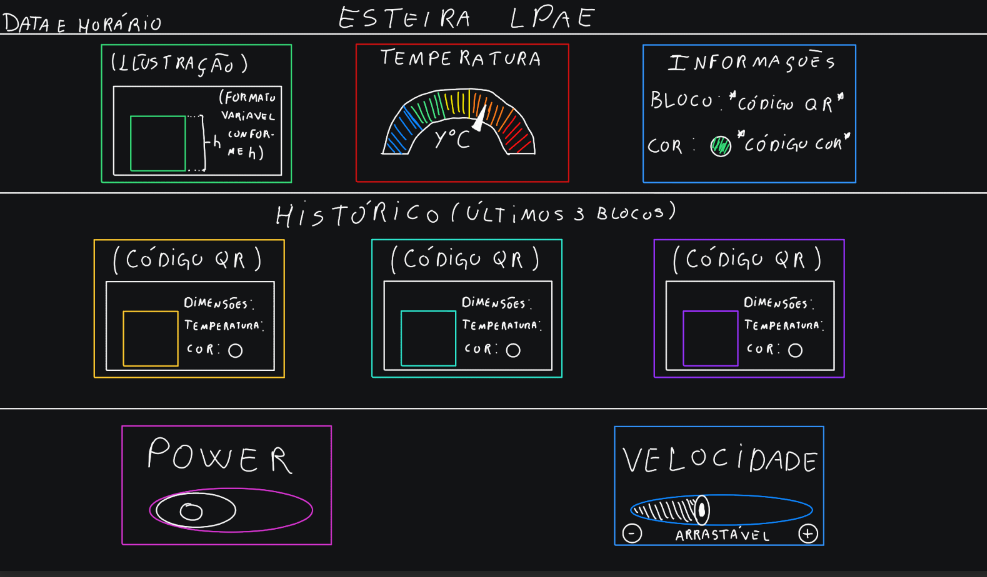 DATA E HORÁRIO
ESTEIRA LPAE
(ILUSTRAÇÃO)
(FORMATO
VARIAVEL
CONFOR-
ME h)
h
TEMPERATURA
Y°C
INFORMAÇÕES
BLOCO: "CÓDIGO QR"
COR: "CÓDIGO COR"
HISTÓRICO (ÚLTIMOS 3 BLOCOS)
(CÓDIGO QR)
DIMENSÕES:
TEMPERATURA:
COR:
(CÓDIGO QR)
DIMENSÕES:
TEMPERATURA:
COR:
(CÓDIGO QR)
DIMENSÕES:
TEMPERATURA:
COR:
POWER
VELOCIDADE
- ARRASTÁVEL +